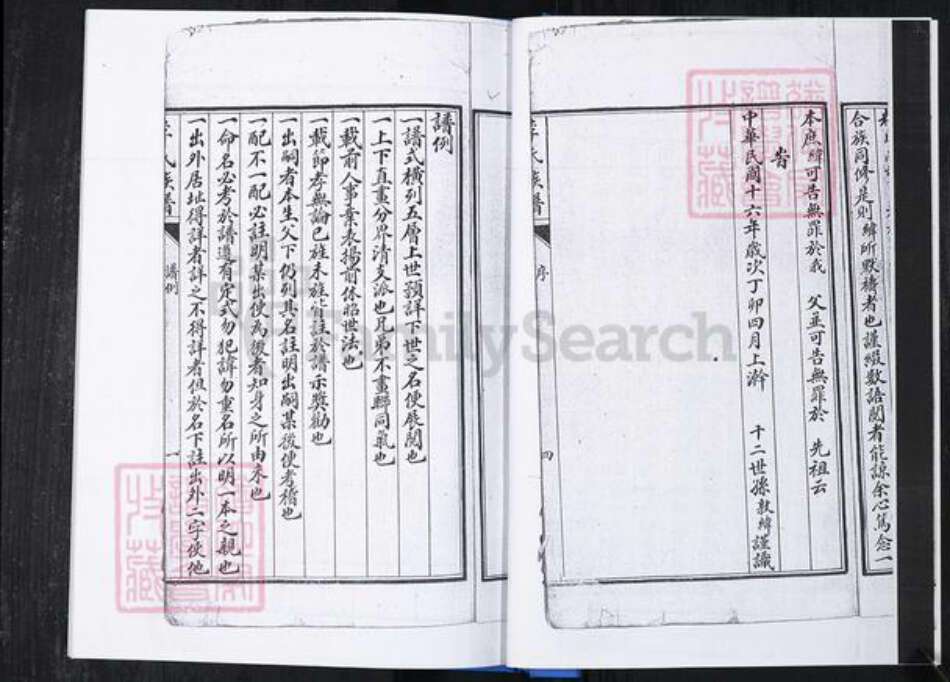 合族同修是則緯所默禱者也謹綴數語閱者能諒余心篤念一
本庶緯可告無罪於我 父並可告無罪於 先祖云
旹
中華民國十六年歲次丁卯四月上澣 十二世孫敦緯謹識
序
四
譜例
一譜式橫列五層上世預詳下世之名便展閱也
一上下直畫分界清支派也兄弟不畫聯同氣也
一載前人事業表揚前休昭世法也
一載節孝無論已旌未旌皆註於譜示獎勸也
一出嗣者本生父下仍列其名註明出嗣某後便考稽也
一配不一配必註明某出使為後者知身之所由來也
一命名必考於譜遵有定式勿犯諱勿重名所以明一本之親也
一出外居址得詳者詳之不得詳者但於名下註出外二字使他
氏族譜
譜例
一
FamilySearch